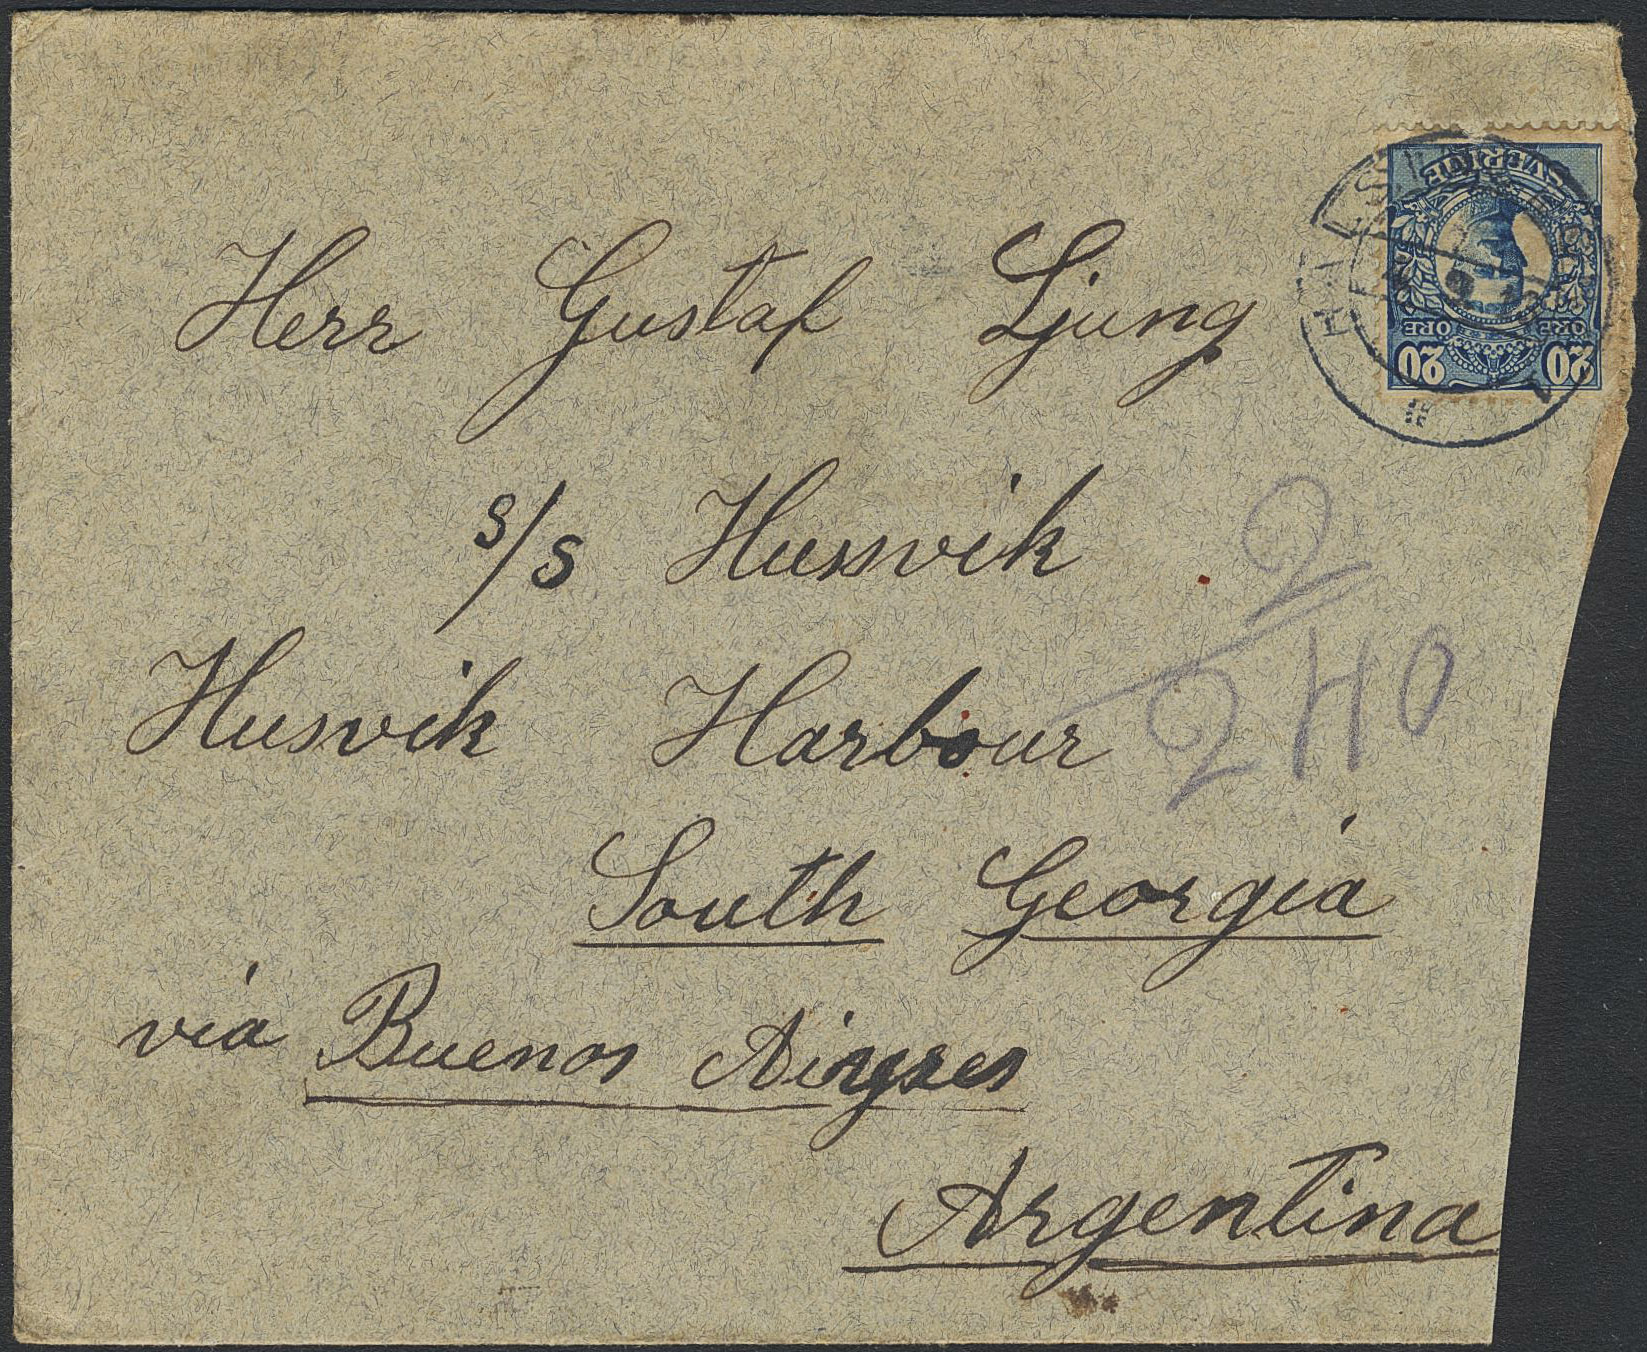 Herr Gustaf Ljung
s/s Husvik
Husvik Harbour
South Georgia
via Buenos Aiyres
Argentina
2
240
SVERIGE
ÖRE ÖRE
20 20